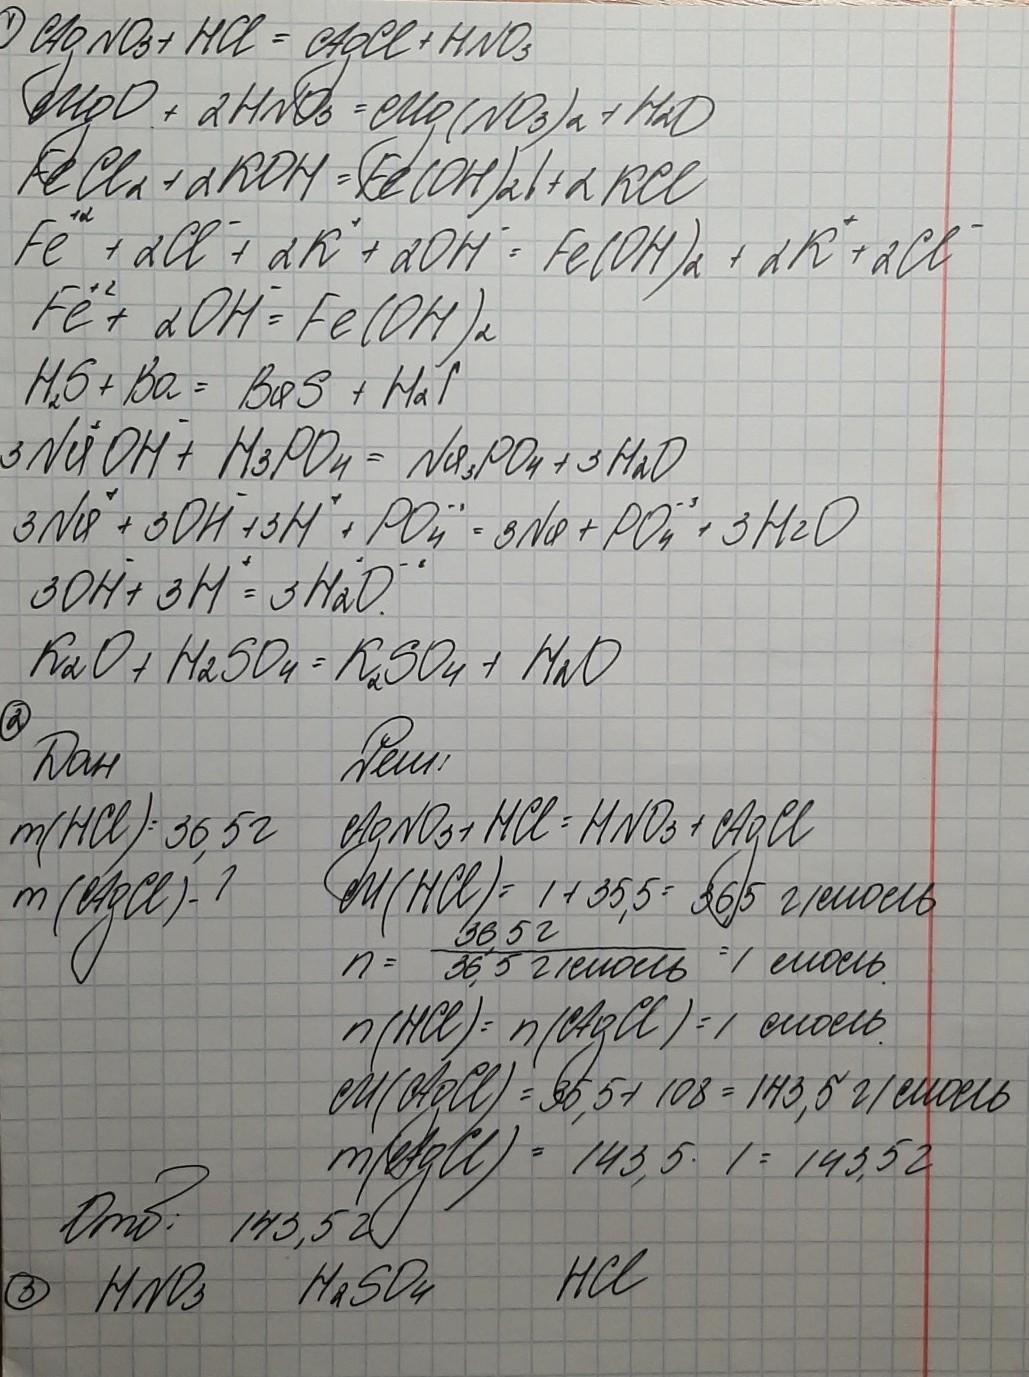 ① AgNO₃ + HCl = AgCl + HNO₃
MgO + 2HNO₃ = Mg(NO₃)₂ + H₂O
FeCl₂ + 2KOH = Fe(OH)₂↓ + 2KCl
Fe⁺² + 2Cl⁻ + 2K⁺ + 2OH⁻ = Fe(OH)₂ + 2K⁺ + 2Cl⁻
Fe⁺² + 2OH⁻ = Fe(OH)₂
H₂S + Ba = BaS + H₂↑
3Na⁺OH⁻ + H₃PO₄ = Na₃PO₄ + 3H₂O
3Na⁺ + 3OH⁻ + 3H⁺ + PO₄⁻³ = 3Na + PO₄⁻³ + 3H₂O
3OH⁻ + 3H⁺ = 3H₂O.
K₂O + H₂SO₄ = K₂SO₄ + H₂O
②
Дан Реш:
m(HCl) = 36,5г AgNO₃ + HCl = HNO₃ + AgCl
m(AgCl) - ? M(HCl) = 1 + 35,5 = 36,5 г/моль
n = 36,5 г / 36,5 г/моль = 1 моль.
n(HCl) = n(AgCl) = 1 моль.
M(AgCl) = 35,5 + 108 = 143,5 г/моль
m(AgCl) = 143,5 · 1 = 143,5г
Отв: 143,5 г
③ HNO₃ H₂SO₄ HCl